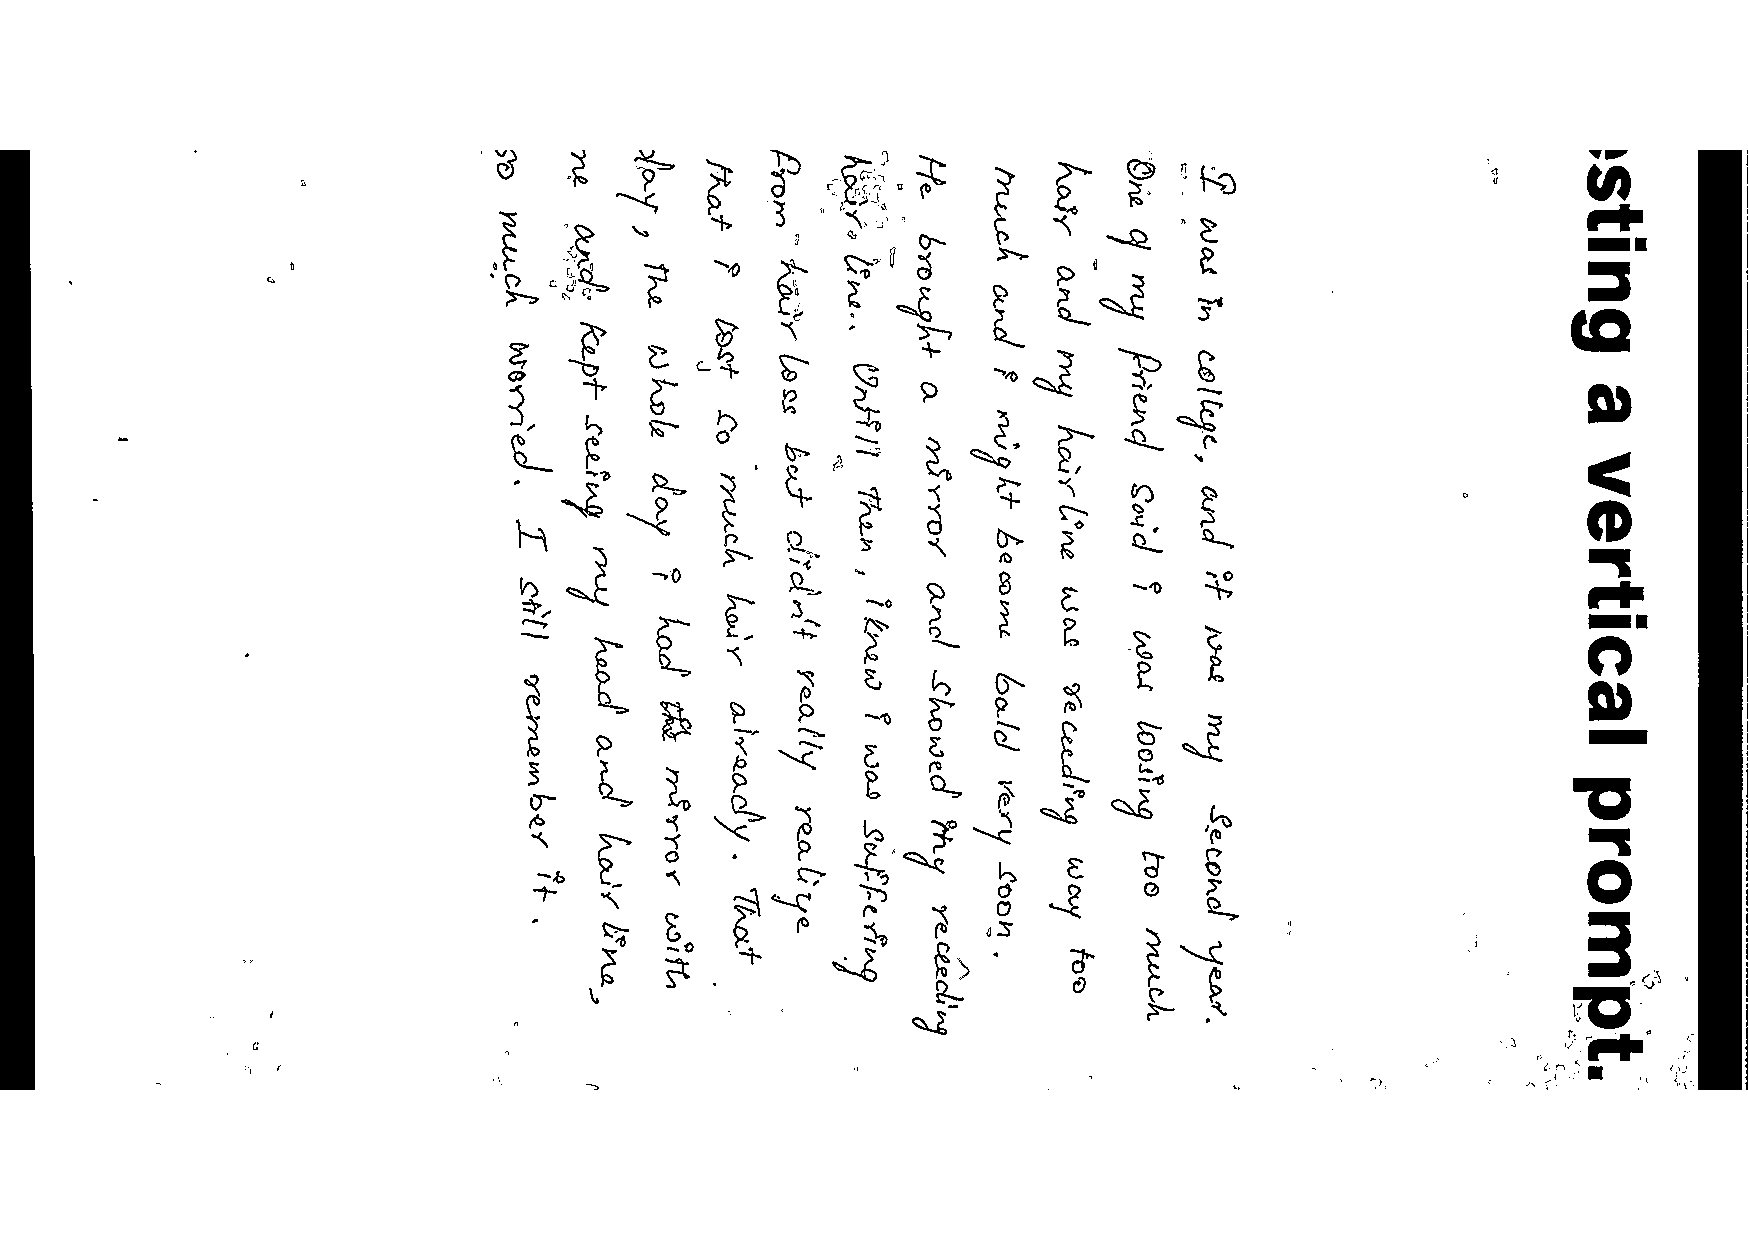 sting a vertical prompt.
I was in college, and it was my second year.
One of my friend said i was loosing too much
hair and my hairline was receeding way too
much and i might become bald very soon.
He brought a mirror and showed my receeding
hair line.. Untill then, i knew i was suffering
from hair loss but didn't really realize
that i lost so much hair already. That
day, the whole day i had the mirror with
me and kept seeing my head and hair line,
so much worried. I still remember it.